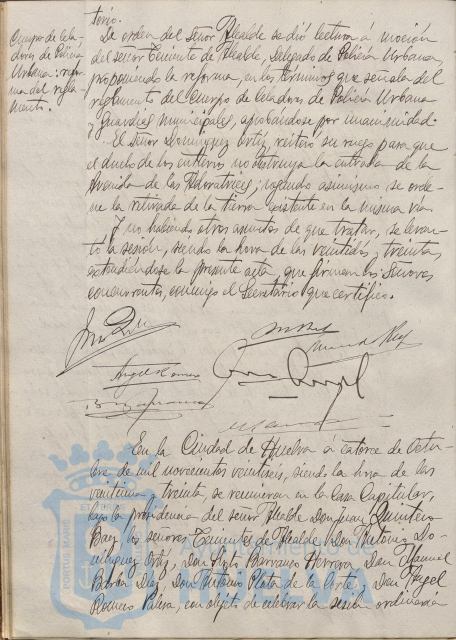 torio.
Cuerpo de Cela-
dores de Policía
Urbana: refor-
ma del regla-
mento.
De orden del señor Alcalde se dió lectura a moción
del señor Teniente de Alcalde, Delegado de Policía Urbana,
proponiendo la reforma, en los términos que señala del
reglamento del Cuerpo de Celadores de Policía Urbana
y Guardias municipales, aprobándose por unanimidad.
El señor Domínguez Ortíz, reitera su ruego para que
el duelo de los entierros no obstruya la entrada de la
Avenida de las Adoratrices; rogando asimismo, se orde-
ne la retirada de la tierra existente en la misma vía.
Y no habiendo otros asuntos de que tratar, se levan-
tó la sesión, siendo la hora de las veintidós y treinta,
extendiéndose la presente acta, que firman los señores
concurrentes, conmigo el Secretario que certifico.
Angel Romero
En la Ciudad de Huelva á catorce de Octu-
bre de mil novecientos veintiseis, siendo la hora de las
veintiuna y treinta, se reunieron en la Casa Capitular,
bajo la presidencia del señor Alcalde Don Juan Quintero
Baez los señores Tenientes de Alcalde Don Antonio Do-
mínguez Ortíz, Don Barranco Herrera, Don Manuel
Barón Díaz, Don Antonio Plata de la Corte y Don Angel
Romero Palma, con objeto de celebrar la sesión ordinaria
PORTUS MARIS
Ayuntamiento de
HUELVA